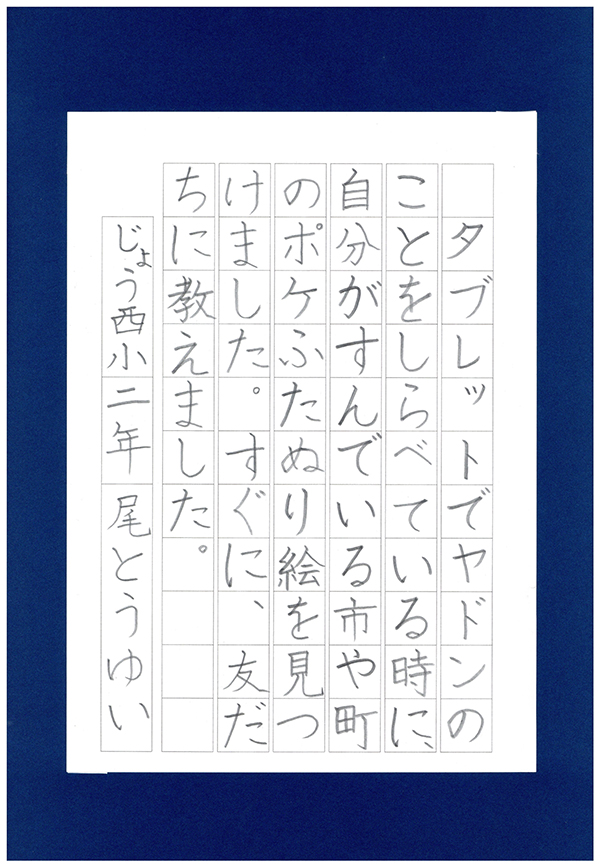 タブレットでヤドンの
ことをしらべている時に、
自分がすんでいる市や町
のポケふたぬり絵を見つ
けました。すぐに、友だ
ちに教えました。
じょう西小 二年 尾とうゆい